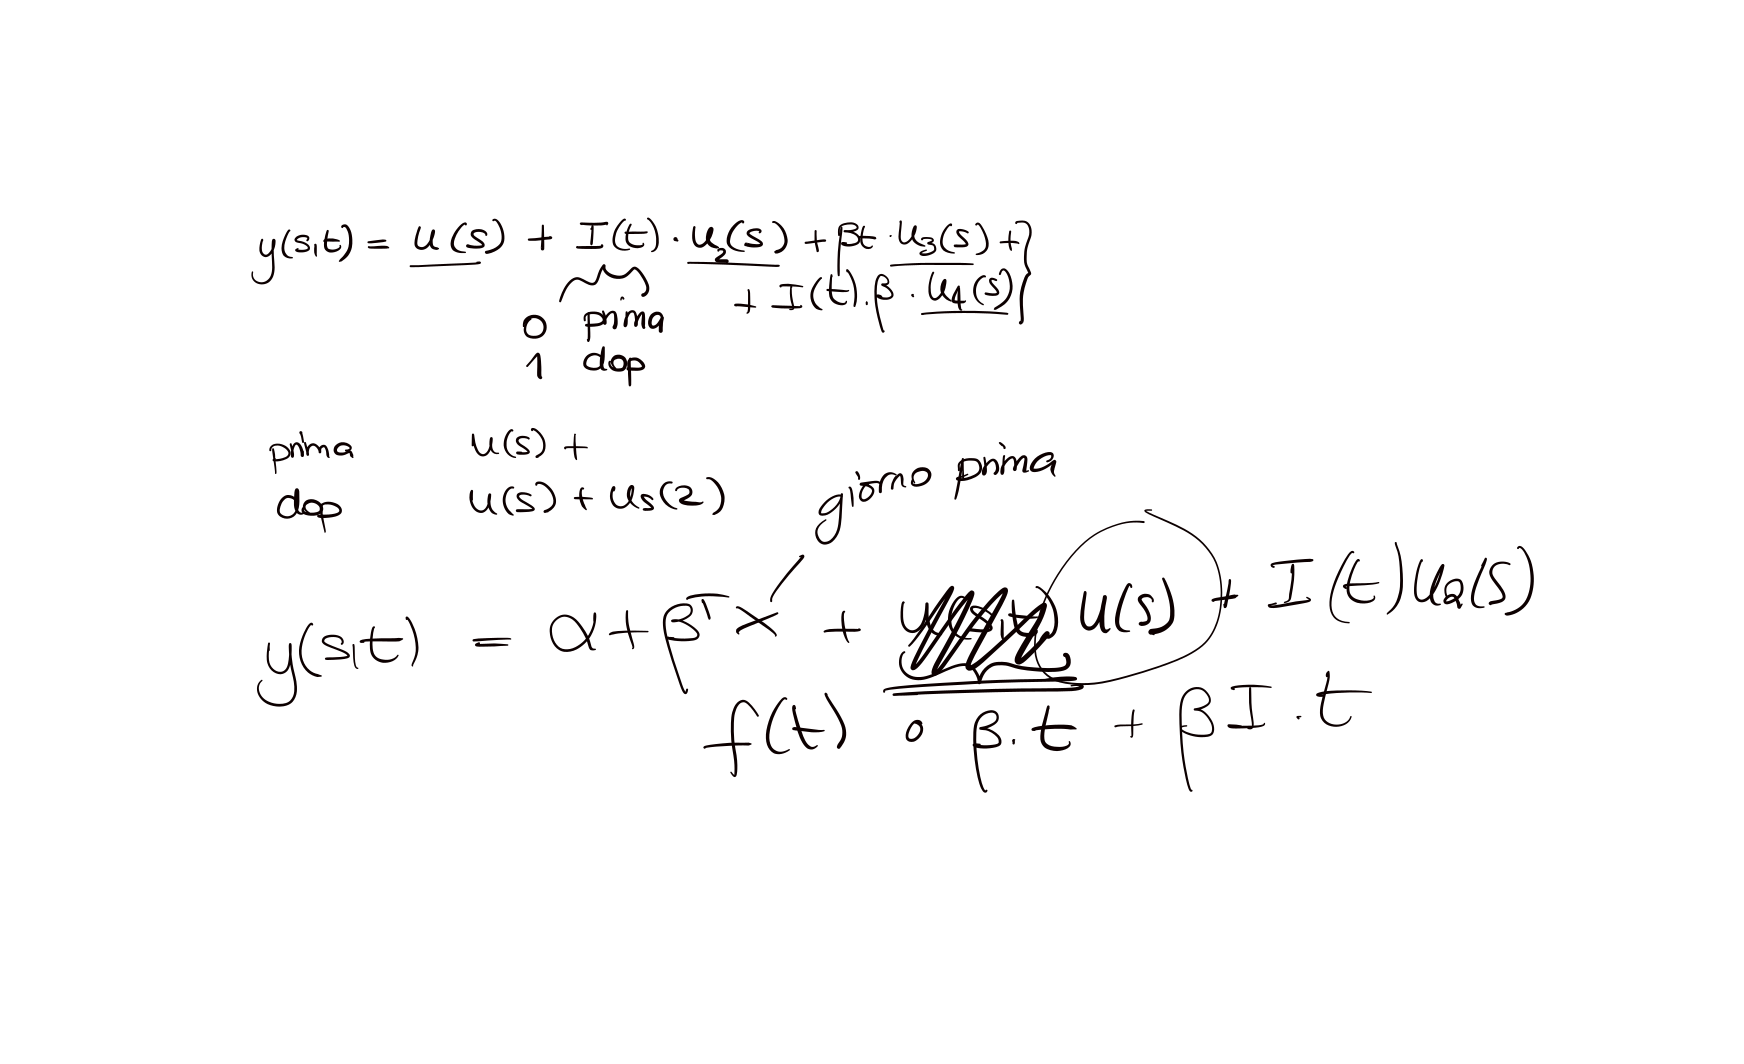 y(s,t) = u(s) + I(t) · u₂(s) + βt · u₃(s) +
+ I(t) . β · u₄(s)
0 prima
1 dop
prima u(s) +
dop u(s) + us(2)
giorno prima
y(s,t) = α + βᵀx + u(s) + I(t)u₂(s)
f(t) o β.t + βI.t